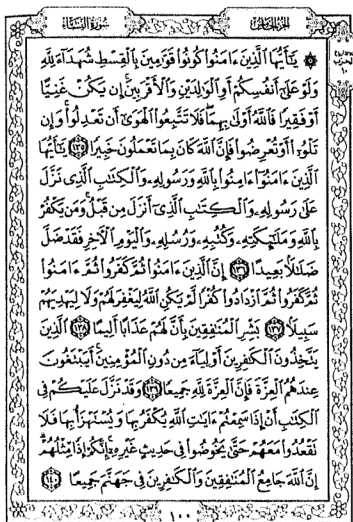 سُورَةُ النِّسَاءِ الجُزءُ الخَامِسُ
۞ يَٰٓأَيُّهَا ٱلَّذِينَ ءَامَنُوا۟ كُونُوا۟ قَوَّٰمِينَ بِٱلْقِسْطِ شُهَدَآءَ لِلَّهِ
وَلَوْ عَلَىٰٓ أَنفُسِكُمْ أَوِ ٱلْوَٰلِدَيْنِ وَٱلْأَقْرَبِينَ ۚ إِن يَكُنْ غَنِيًّا
أَوْ فَقِيرًا فَٱللَّهُ أَوْلَىٰ بِهِمَا ۖ فَلَا تَتَّبِعُوا۟ ٱلْهَوَىٰٓ أَن تَعْدِلُوا۟ ۚ وَإِن
تَلْوُۥٓا۟ أَوْ تُعْرِضُوا۟ فَإِنَّ ٱللَّهَ كَانَ بِمَا تَعْمَلُونَ خَبِيرًا ١٣٥ يَٰٓأَيُّهَا
ٱلَّذِينَ ءَامَنُوٓا۟ ءَامِنُوا۟ بِٱللَّهِ وَرَسُولِهِۦ وَٱلْكِتَٰبِ ٱلَّذِى نَزَّلَ
عَلَىٰ رَسُولِهِۦ وَٱلْكِتَٰبِ ٱلَّذِىٓ أَنزَلَ مِن قَبْلُ ۚ وَمَن يَكْفُرْ
بِٱللَّهِ وَمَلَٰٓئِكَتِهِۦ وَكُتُبِهِۦ وَرُسُلِهِۦ وَٱلْيَوْمِ ٱلْءَاخِرِ فَقَدْ ضَلَّ
ضَلَٰلًۢا بَعِيدًا ١٣٦ إِنَّ ٱلَّذِينَ ءَامَنُوا۟ ثُمَّ كَفَرُوا۟ ثُمَّ ءَامَنُوا۟
ثُمَّ كَفَرُوا۟ ثُمَّ ٱزْدَادُوا۟ كُفْرًا لَّمْ يَكُنِ ٱللَّهُ لِيَغْفِرَ لَهُمْ وَلَا لِيَهْدِيَهُمْ
سَبِيلًۢا ١٣٧ بَشِّرِ ٱلْمُنَٰفِقِينَ بِأَنَّ لَهُمْ عَذَابًا أَلِيمًا ١٣٨ ٱلَّذِينَ
يَتَّخِذُونَ ٱلْكَٰفِرِينَ أَوْلِيَآءَ مِن دُونِ ٱلْمُؤْمِنِينَ ۚ أَيَبْتَغُونَ
عِندَهُمُ ٱلْعِزَّةَ فَإِنَّ ٱلْعِزَّةَ لِلَّهِ جَمِيعًا ١٣٩ وَقَدْ نَزَّلَ عَلَيْكُمْ فِى
ٱلْكِتَٰبِ أَنْ إِذَا سَمِعْتُمْ ءَايَٰتِ ٱللَّهِ يُكْفَرُ بِهَا وَيُسْتَهْزَأُ بِهَا فَلَا
تَقْعُدُوا۟ مَعَهُمْ حَتَّىٰ يَخُوضُوا۟ فِى حَدِيثٍ غَيْرِهِۦٓ ۚ إِنَّكُمْ إِذًا مِّثْلُهُمْ ۗ
إِنَّ ٱللَّهَ جَامِعُ ٱلْمُنَٰفِقِينَ وَٱلْكَٰفِرِينَ فِى جَهَنَّمَ جَمِيعًا ١٤٠
١٠٠